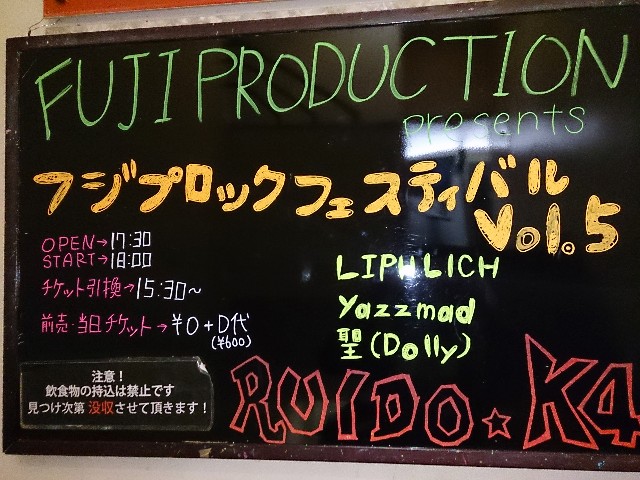 FUJI PRODUCTION
presents
フジプロックフェスティバル
Vol.5
OPEN→17:30
START→18:00
チケット引換→15:30~
前売・当日チケット→¥0+D代
(¥600)
LIPHLICH
Yazzmad
聖(Dolly)
注意!
飲食物の持込は禁止です
見つけ次第 没収させて頂きます!
RUIDO☆K4